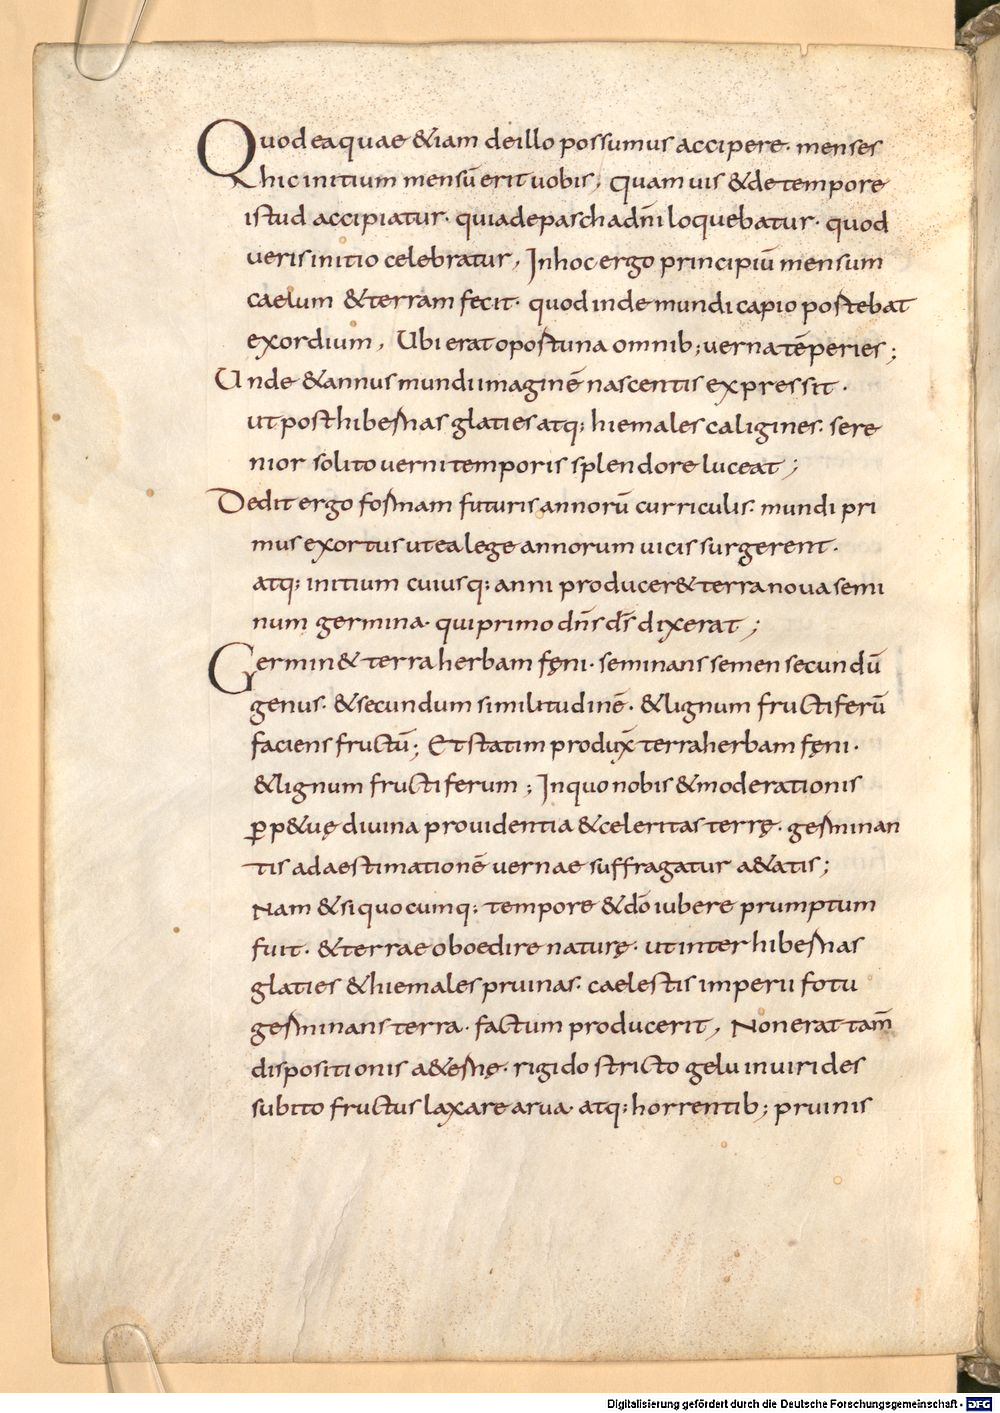 Quod ea quae &iam de illo possumus accipere· menses
hic initium mensū erit uobis; Quam uis &de tempore
istud accipiatur· quia de pascha dn̄i loquebatur· quod
ueris initio celebratur, In hoc ergo principiū mensum
caelum &terram fecit· quod inde mundi capi oportebat
exordium, Ubi erat oportuna omnib; uerna tēperies;
Unde &annus mundi imaginē nascentis expressit·
ut post hibernas glaties atq; hiemales caligines· sere
nior solito uerni temporis splendore luceat;
Dedit ergo formam futuris annorū curriculis· mundi pri
mus exortus ut ea lege annorum uicis surgerent·
atq; initium cuiusq; anni producer& terra noua semi
num germina· qui primo dn̄s d̄s dixerat;
Germin& terra herbam fęni· seminans semen secundū
genus· &secundum similitudinē· &lignum fructiferū
faciens fructū; Et statim produx̄ terra herbam fęni·
&lignum fructiferum; In quo nobis &moderationis
ꝑp&uę diuina prouidentia &celeritas terrę· germinan
tis ad aestimationē uernae suffragatur a&atis;
Nam &si quocumq; tempore &dō iubere prumptum
fuit· &terrae oboedire naturę· ut inter hibernas
glaties &hiemales pruinas· caelestis imperii fotu
germinans terra· factum producerit, Non erat tam̄
dispositionis a&ernę· rigido stricto gelu in uirides
subito fructus laxare arua· atq; horrentib; pruinis
Digitalisierung gefördert durch die Deutsche Forschungsgemeinschaft - DFG